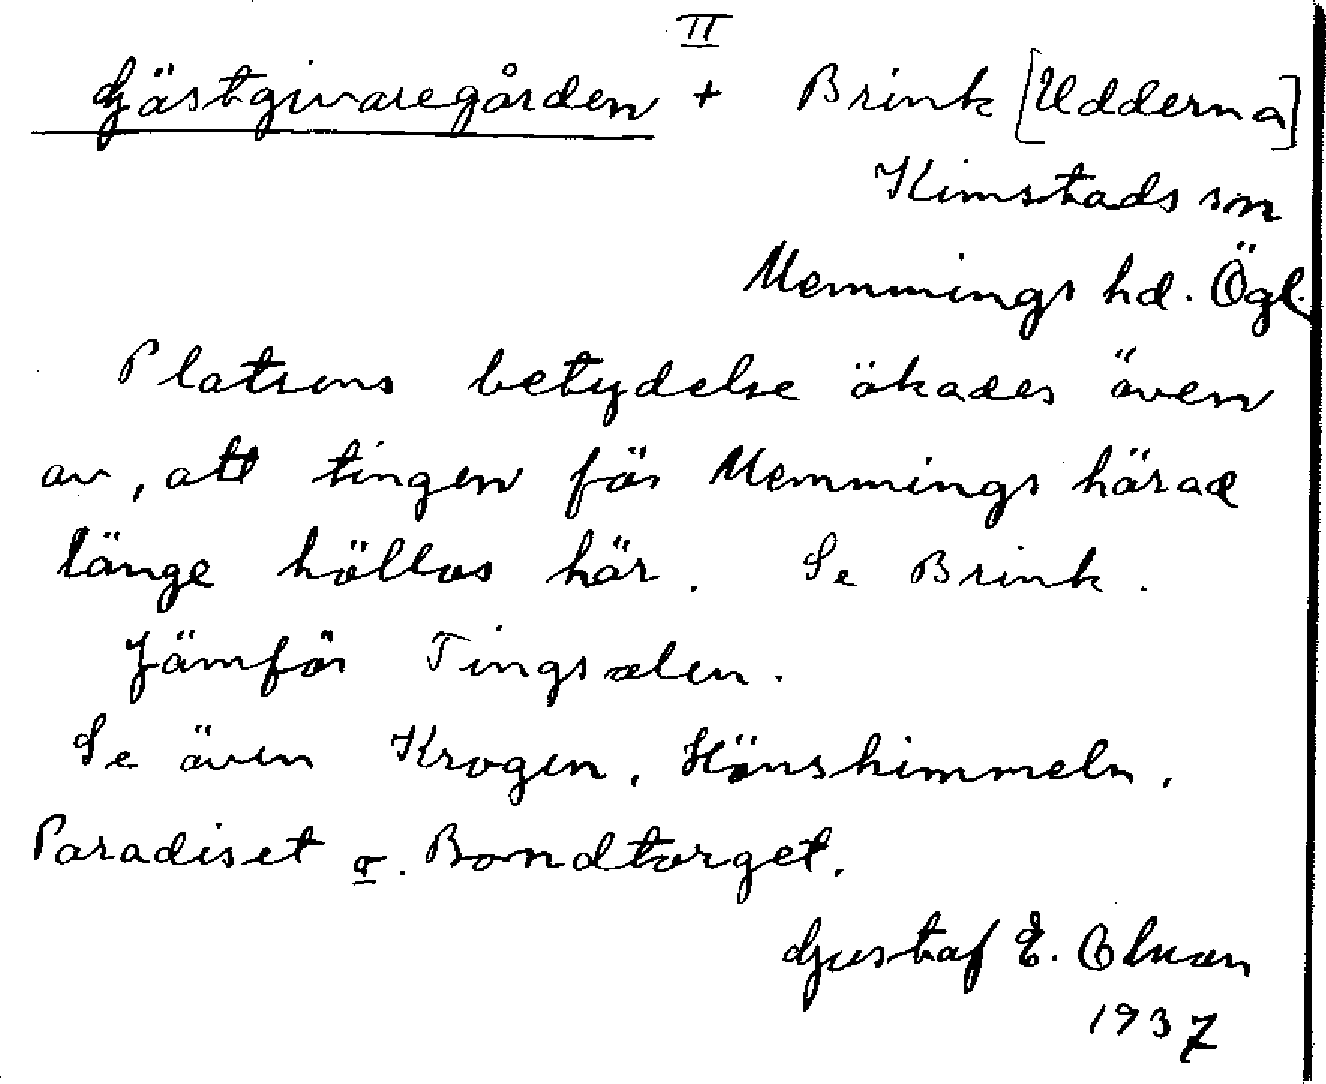 II
Gästgivaregården + Brink [Udderna]
Kimstads sn
Memmings hd. Ögl.
Platsens betydelse ökades även
av, att tingen för Memmings härad
länge höllos här. Se Brink.
Jämför Tingsalen.
Se även Krogen, Hönshimmeln,
Paradiset o. Bondtorget.
Gustaf E. Olsson
1937